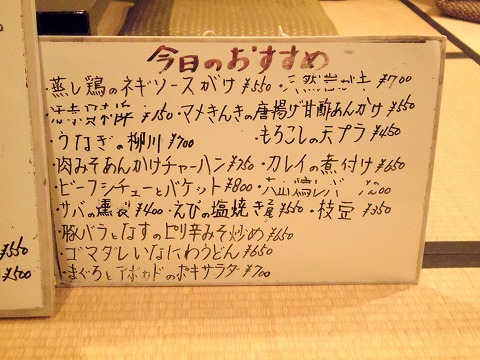 今日のおすすめ
・蒸し鶏のネギソースがけ ¥550 ・天然岩がき ¥700
¥150 ・マメきんきの唐揚げ甘酢あんかけ ¥550
・うなぎの柳川 ¥700 もちこしの天プラ ¥450
・肉みそあんかけチャーハン ¥750 ・カレイの煮付け ¥650
・ビーフシチューとバケット ¥800
・サバの燻製 ¥400 ・えびの塩焼き ¥550 ・枝豆 ¥350
・豚バラとなすのピリ辛みそ炒め ¥650
・ゴマダレいなにわうどん ¥650
・まぐろとアボカドのポキサラダ ¥700
¥550
¥500